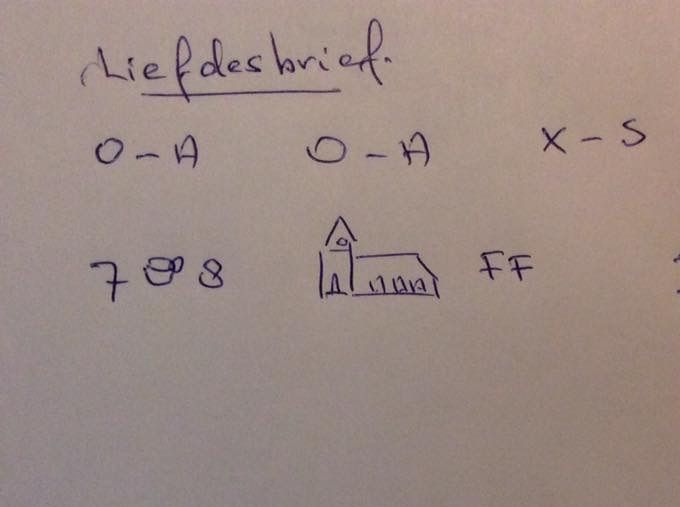 Liefdesbrief.
O - A O - A X - S
7 8 FF